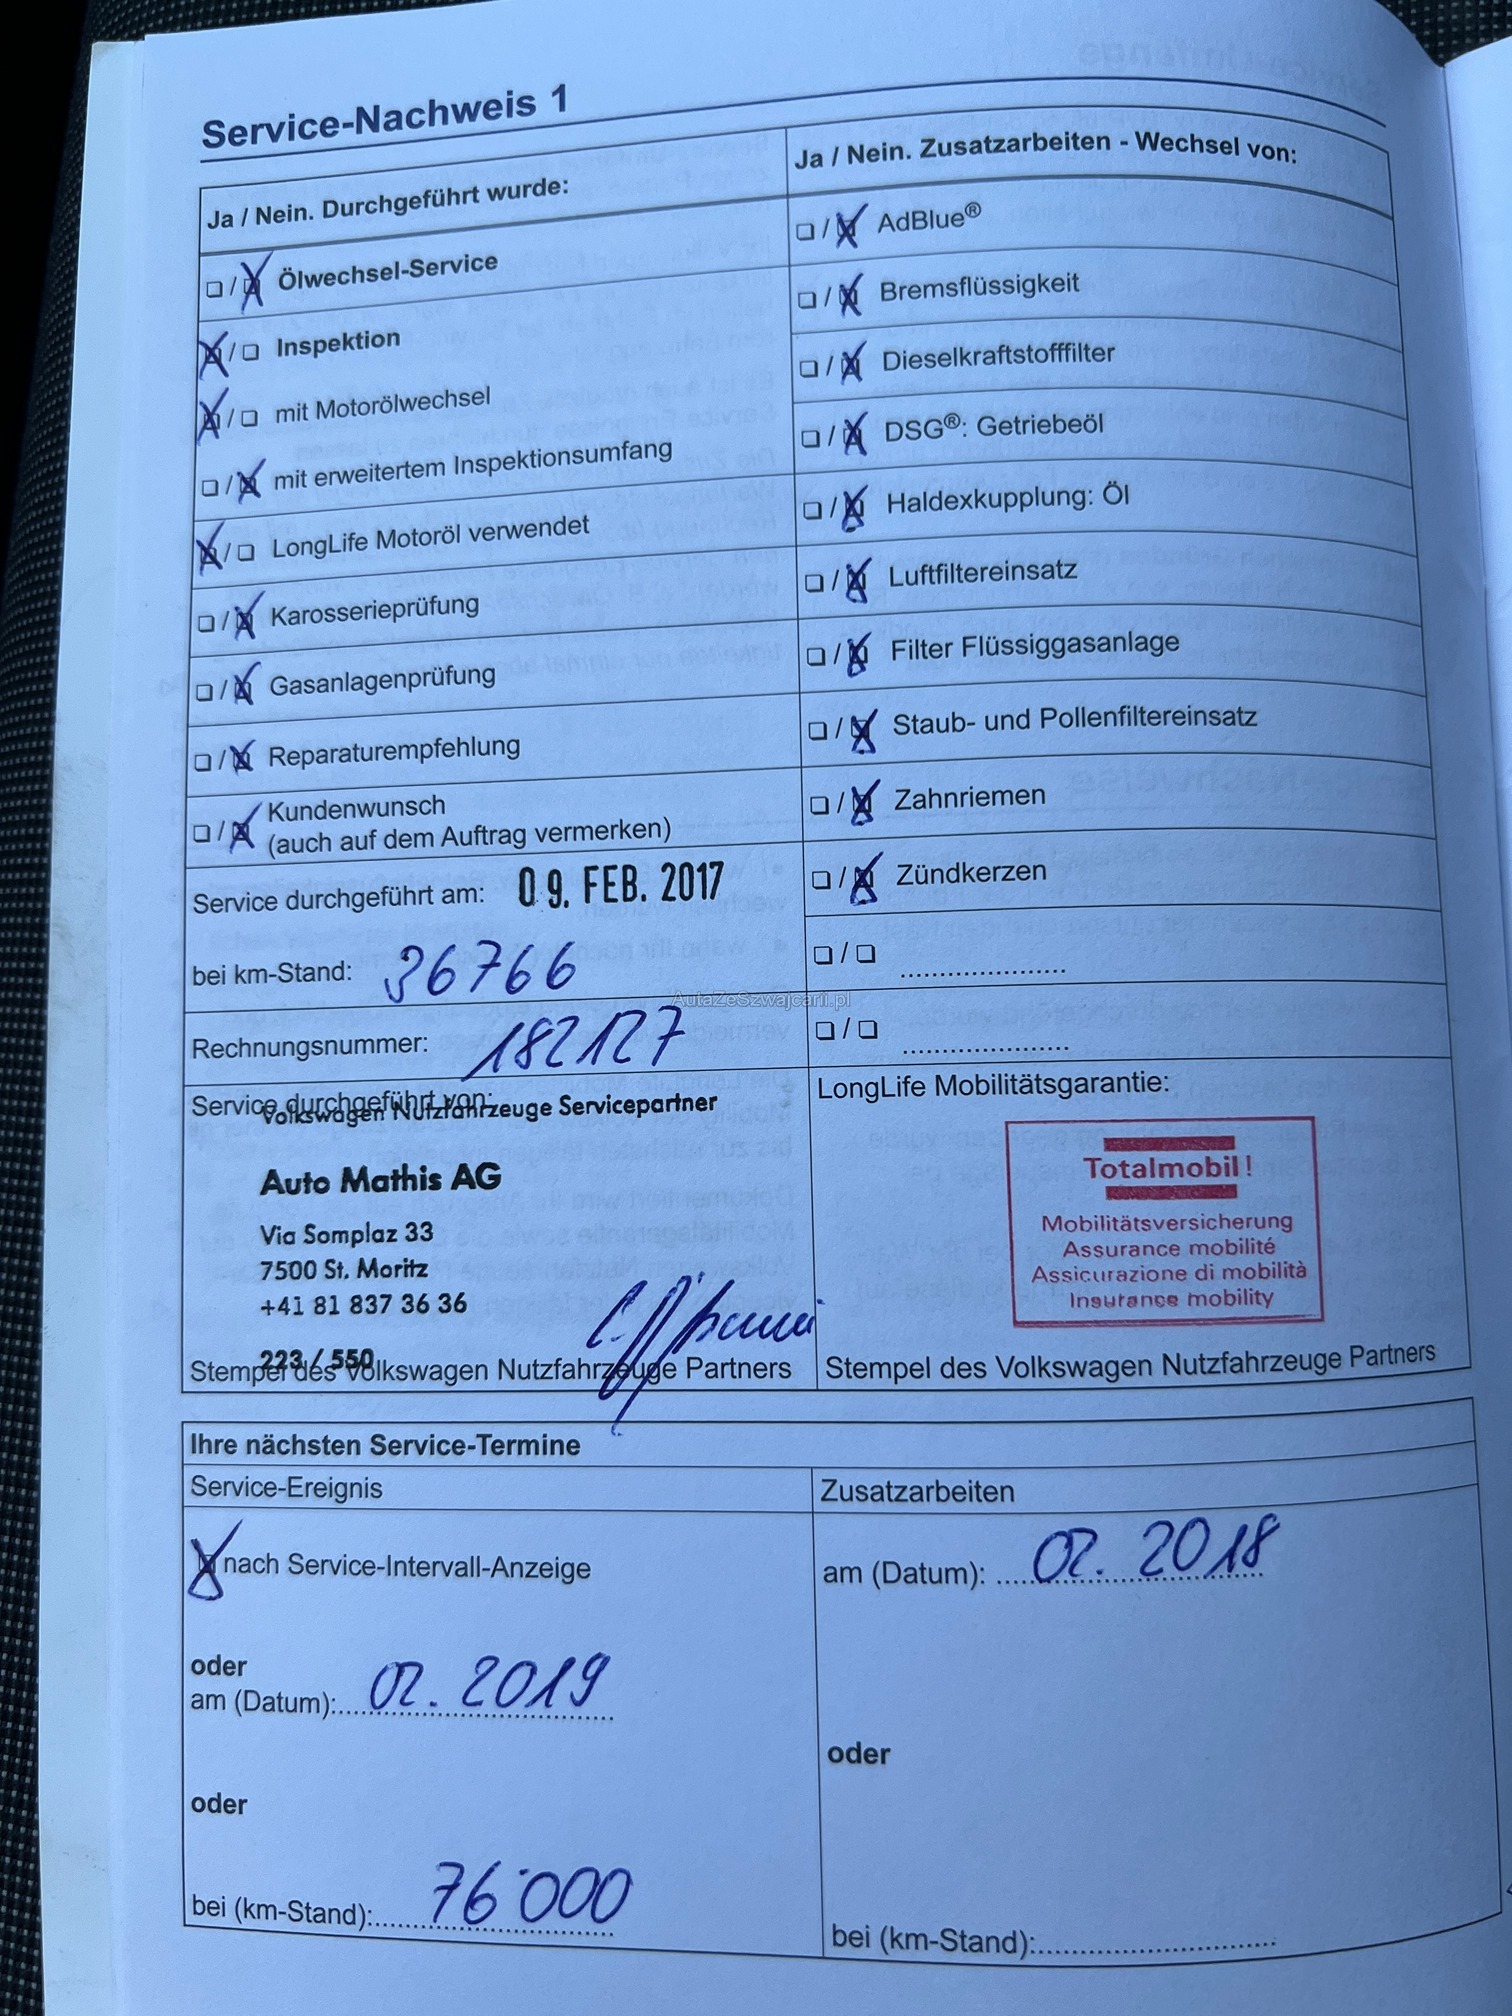 Service-Nachweis 1
Ja / Nein. Durchgeführt wurde:
Ölwechsel-Service
Inspektion
mit Motorölwechsel
mit erweitertem Inspektionsumfang
LongLife Motoröl verwendet
Karosserieprüfung
Gasanlagenprüfung
Reparaturempfehlung
Kundenwunsch
(auch auf dem Auftrag vermerken)
Service durchgeführt am: 09. FEB. 2017
bei km-Stand: 36766
Rechnungsnummer: 182127
Service durchgeführt von:
Volkswagen Nutzfahrzeuge Servicepartner
Auto Mathis AG
Via Somplaz 33
7500 St. Moritz
+41 81 837 36 36
223 / 550
Stempel des Volkswagen Nutzfahrzeuge Partners
Ja / Nein. Zusatzarbeiten - Wechsel von:
AdBlue®
Bremsflüssigkeit
Dieselkraftstofffilter
DSG®: Getriebeöl
Haldexkupplung: Öl
Luftfiltereinsatz
Filter Flüssiggasanlage
Staub- und Pollenfiltereinsatz
Zahnriemen
Zündkerzen
AutaZeSzwajcarii.pl
LongLife Mobilitätsgarantie:
Totalmobil!
Mobilitätsversicherung
Assurance mobilité
Assicurazione di mobilità
Insurance mobility
Stempel des Volkswagen Nutzfahrzeuge Partners
Ihre nächsten Service-Termine
Service-Ereignis
nach Service-Intervall-Anzeige
oder
am (Datum): 02. 2019
oder
bei (km-Stand): 76'000
Zusatzarbeiten
am (Datum): 02. 2018
oder
bei (km-Stand):